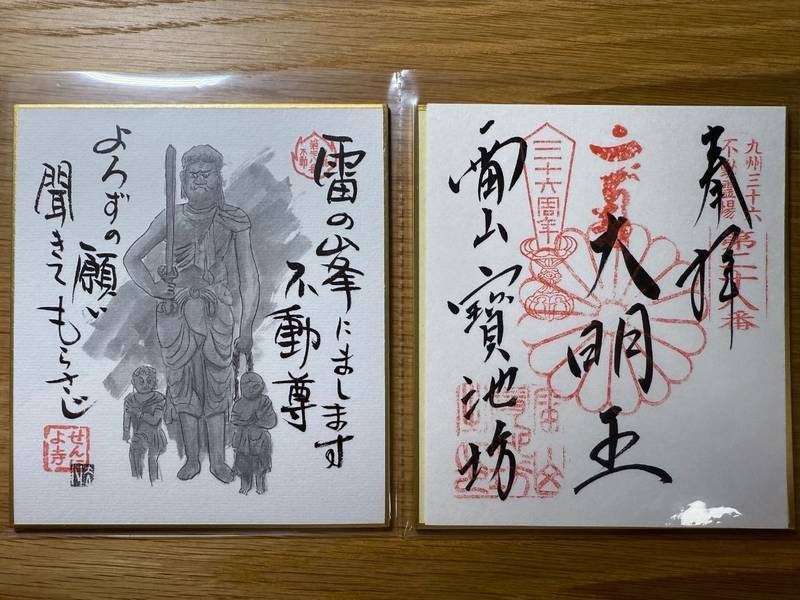 雷の峰にまします
不動尊
よろずの願い
聞きてもらさじ
せんに
よ寺
九州三十六
不動霊場
第二十八番
奉拝
大明王
三十六周年
雷山寳池坊